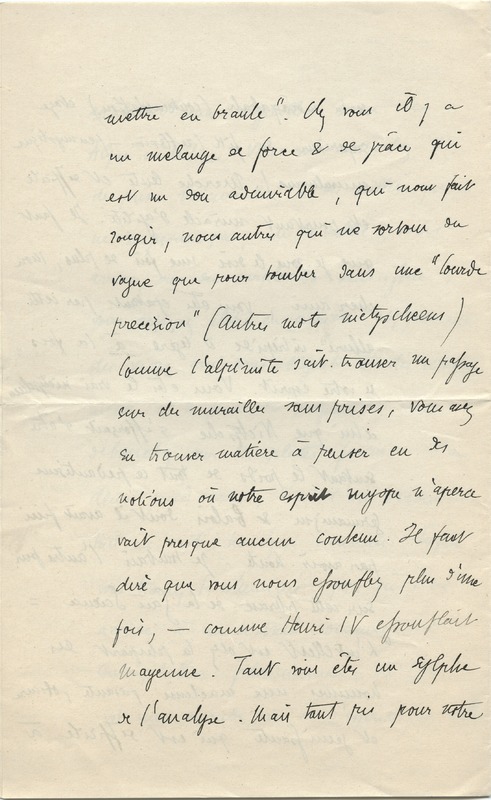 mettre en branle". Chez vous il y a
un mélange de force & de grâce qui
est un don admirable, qui nous fait
rougir, nous autres qui ne sortons du
vague que pour tomber dans une "lourde
precision" (Autres mots nietzscheens)
Comme l'alpiniste sait trouver un passage
sur des murailles sans prises, vous avez
su trouver matière à penser en des
notions où notre esprit myope n'aperce
vait presque aucun contenu. Il faut
dire que vous nous essoufflez plus d'une
fois, — comme Henri IV essouflait
Mayenne. Tant vous êtes un sylphe
de l'analyse. Mais tant pis pour notre